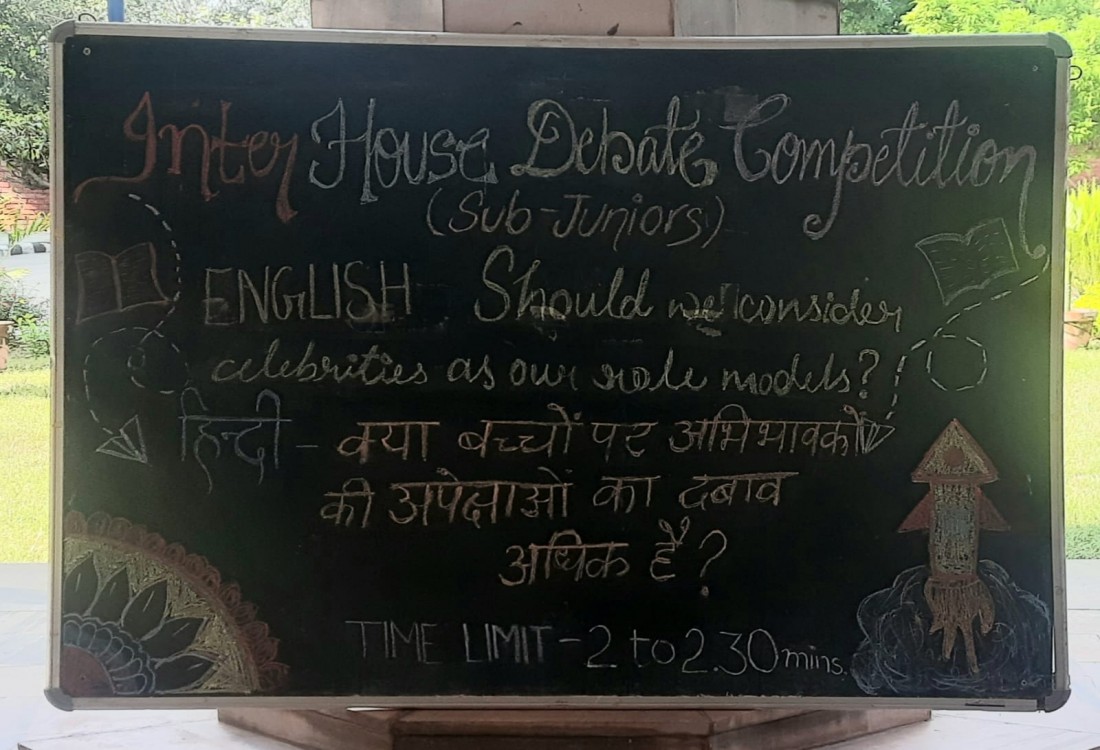 Inter House Debate Competition
(Sub-Juniors)
ENGLISH Should we consider
celebrities as our role models?
हिन्दी - क्या बच्चों पर अभिभावकों
की अपेक्षाओं का दबाव
अधिक है?
TIME LIMIT - 2 to 2.30 mins.